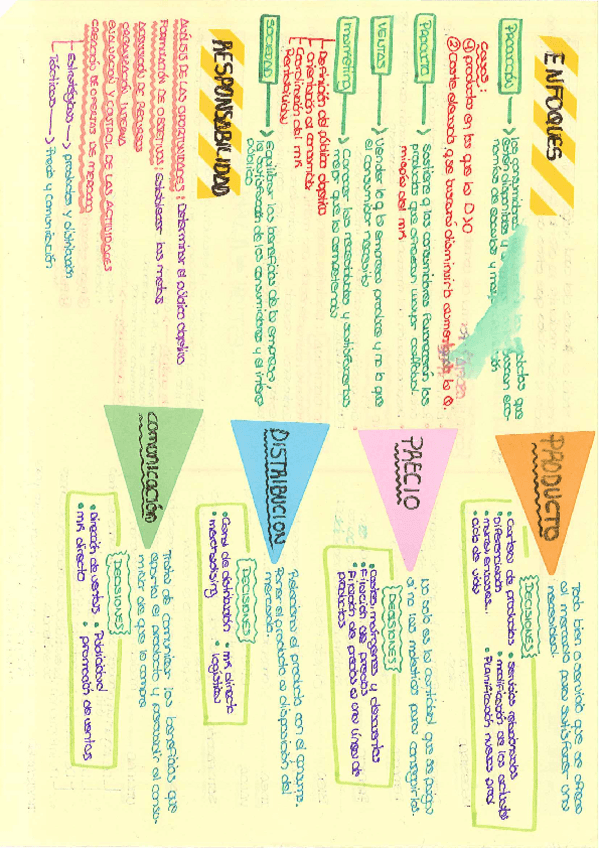 ENFOQUES
PRODUCCIÓN
los consumidores
productos que
estén disponibles y
buscan eco-
nomías de escalas y
casos:
① producto en los que la D>O
② Coste elevado, que buscará disminuirlo aumentando la Q.
PRODUCTO
Sostiene q los consumidores favorecerán los
productos que ofrezcan mayor calidad.
miopía del MK
VENTAS
Vender lo q la empresa produce y no lo que
el consumidor necesita
MARKETING
Conocer las necesidades y satisfacerlas
mejor que la competencia
- Definición del público objetivo
- Orientación al consumidor
- Coordinación del MK
- Rentabilidad
SOCIEDAD
Equilibrar los beneficios de la empresa,
la satisfacción de los consumidores y el interés
público
RESPONSABILIDAD
ANÁLISIS DE LAS OPORTUNIDADES: Determinar el público objetivo
FORMULACIÓN DE OBJETIVOS: Satisfacer las metas
ASIGNACIÓN DE RECURSOS
ORGANIZACIÓN INTERNA
EVALUACIÓN Y CONTROL DE LAS ACTIVIDADES
CREACIÓN DE OFERTAS DE MERCADO
- Estratégicas → productos y distribución
- Tácticas → Precio y comunicación
PRODUCTO
Todo bien o servicio que se ofrece
al mercado para satisfacer una
necesidad.
DECISIONES
• Cartera de productos
• Diferenciación
• marcas, envases...
• ciclo de vida
• Servicios relacionados
• modificación de los actuales
• Planificación nuevos prod
PRECIO
No solo es la cantidad que se paga
si no las molestias para conseguirlos.
DECISIONES
• Costes, márgenes y descuentos
• Fijación de precios
• Fijación de precios a una línea de
productos
DISTRIBUCION
Relaciona el producto con el consumo.
Poner el producto a disposición del
mercado.
DECISIONES
• Canal de distribución
• merchandising
• MK directo
• Logística
COMUNICACIÓN
Trata de comunicar los beneficios que
reporta el producto y persuadir al consu-
midor de que lo compre
DECISIONES
• Dirección de ventas
• MK directo
• Publicidad
• promoción de ventas